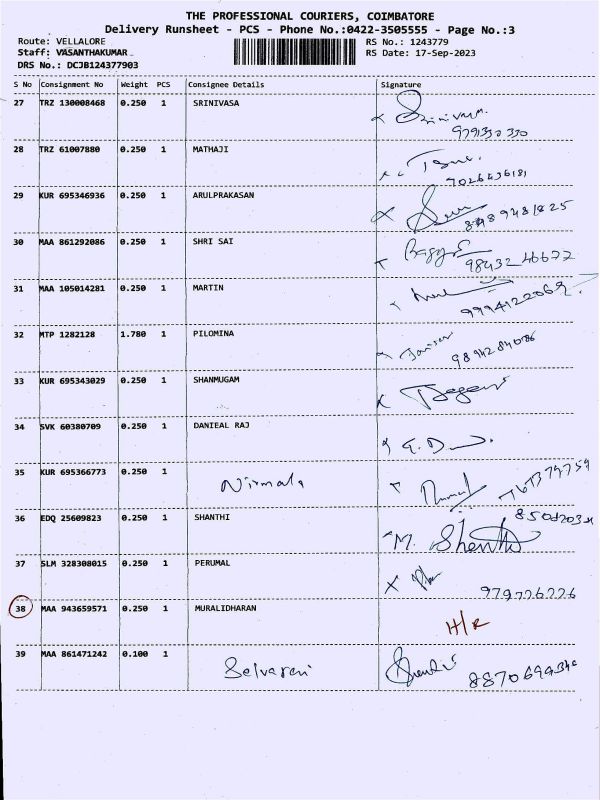 THE PROFESSIONAL COURIERS, COIMBATORE
Delivery Runsheet - PCS - Phone No.:0422-3505555 - Page No.:3
Route: VELLALORE
Staff: VASANTHAKUMAR
DRS No.: DCJB124377903
RS No.: 1243779
RS Date: 17-Sep-2023
S No Consignment No Weight PCS Consignee Details Signature
27 TRZ 130008468 0.250 1 SRINIVASA
28 TRZ 61007880 0.250 1 MATHAJI
29 KUR 695346936 0.250 1 ARULPRAKASAN
30 MAA 861292086 0.250 1 SHRI SAI
9843246677
31 MAA 105014281 0.250 1 MARTIN
9994122069
32 MTP 1282128 1.780 1 PILOMINA
33 KUR 695343029 0.250 1 SHANMUGAM
34 SVK 60380709 0.250 1 DANIEAL RAJ
35 KUR 695366773 0.250 1 Nirmala
36 EDQ 25609823 0.250 1 SHANTHI M. Shanthi
37 SLM 328308015 0.250 1 PERUMAL
38 MAA 943659571 0.250 1 MURALIDHARAN H/R
39 MAA 861471242 0.100 1 Selvarani